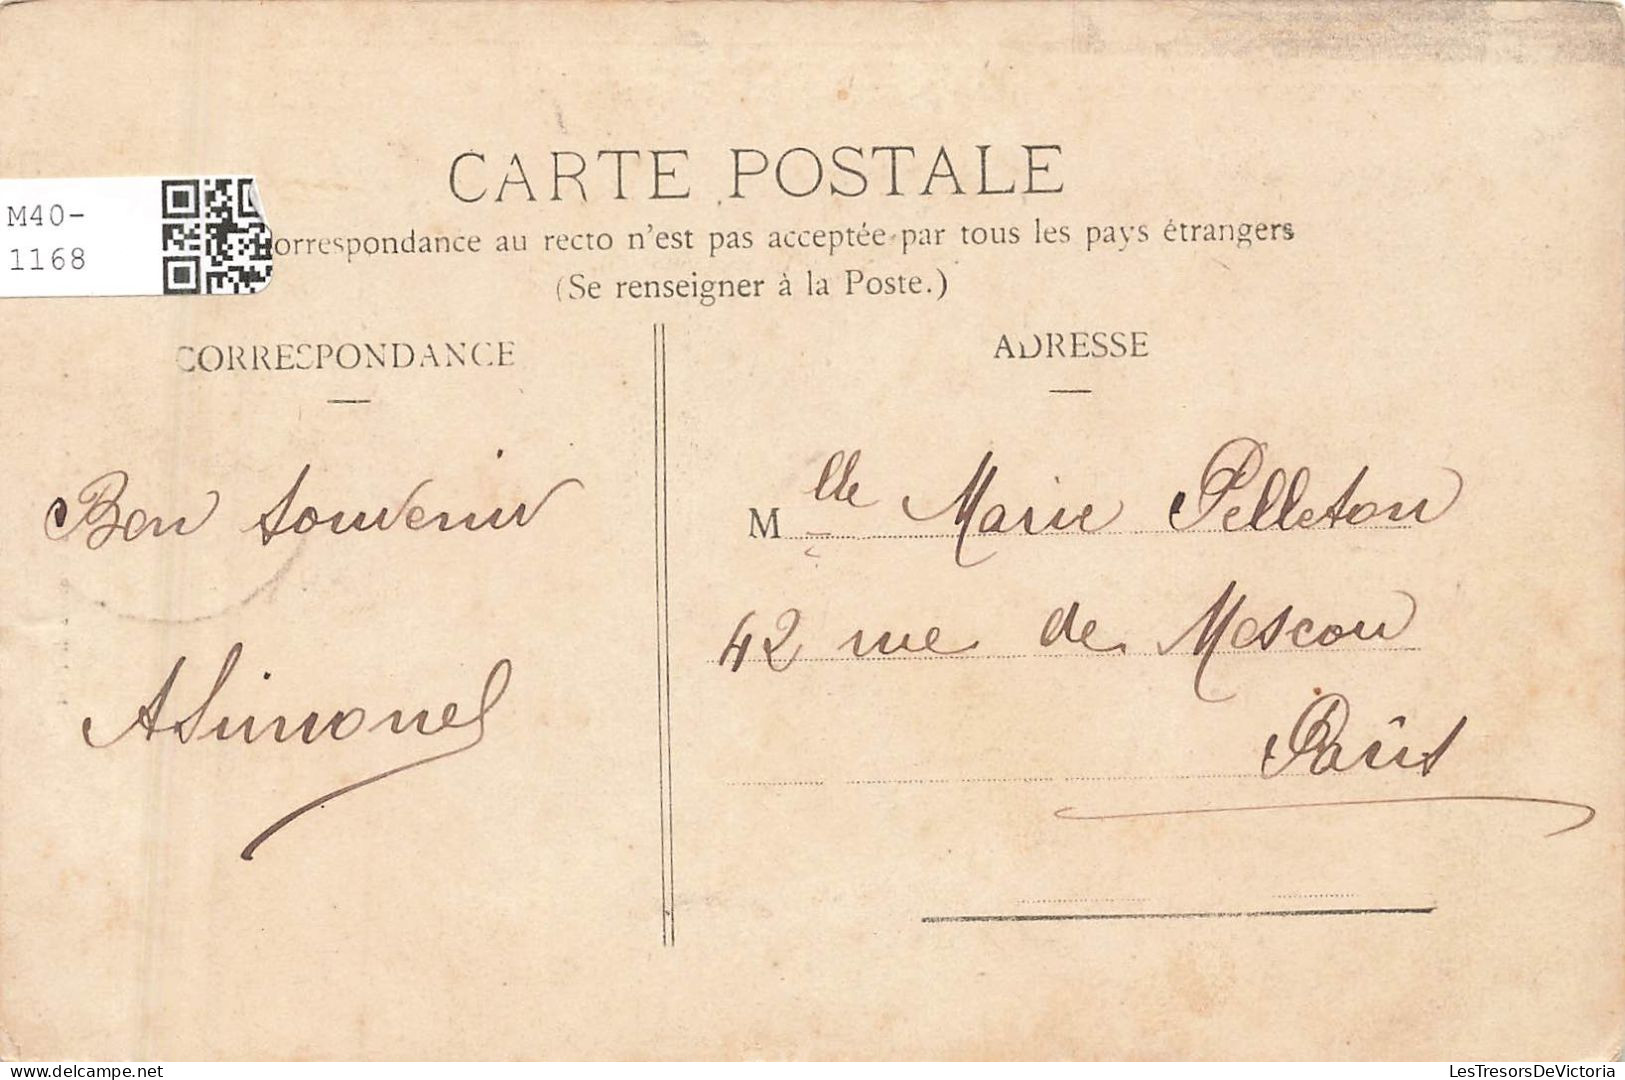 CARTE POSTALE
M40-
1168
orrespondance au recto n'est pas acceptée par tous les pays étrangers
(Se renseigner à la Poste.)
CORRESPONDANCE
Bon souvenir
ASimonel
ADRESSE
Mlle Marie Pelleton
42 rue de Moscou
Paris
LesTresorsDeVictoria